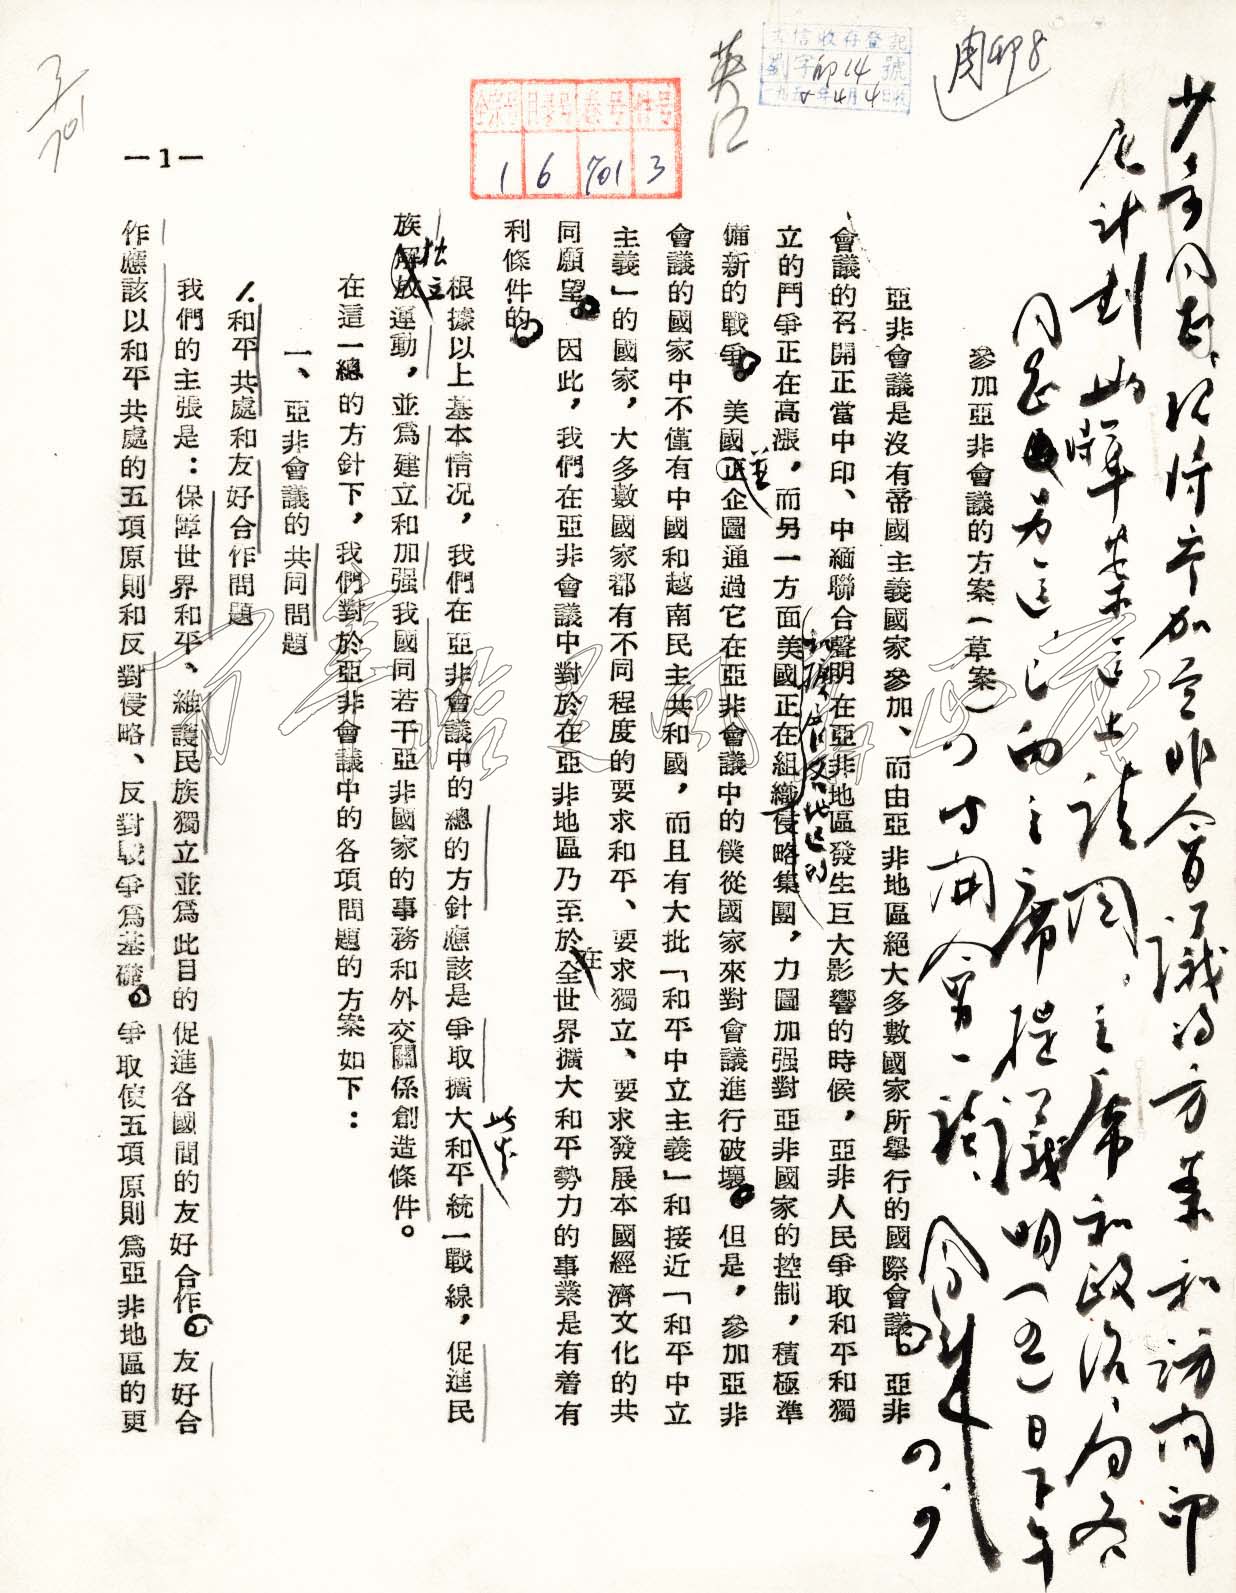 少奇同志：兹将参加亚非会議的方案和訪問印
尼計划的草案送上請閱。主席和政治局各
同志另送，已向主席提議明（五）日下午
時開會一談。
周恩来
四、四
周印8
文信收存登記
劉字 印14 號
一九五五年4月4日收
全宗号 目录号 卷号 件号
1 6 701 3
3/701
—1—
參加亞非會議的方案（草案）
亞非會議是沒有帝國主義國家參加、而由亞非地區絕大多數國家所舉行的國際會議。亞非
會議的召開正當中印、中緬聯合聲明在亞非地區發生巨大影響的時候，亞非人民爭取和平和獨
立的鬥爭正在高漲，而另一方面美國正在組織和擴大各地区的侵略集團，力圖加强對亞非國家的控制，積極準
備新的戰爭。美國並企圖通過它在亞非會議中的僕從國家來對會議進行破壞。但是，參加亞非
會議的國家中不僅有中國和越南民主共和國，而且有大批「和平中立主義」和接近「和平中立
主義」的國家，大多數國家都有不同程度的要求和平、要求獨立、要求發展本國經濟文化的共
同願望。因此，我們在亞非會議中對於在亞非地區乃至在全世界擴大和平勢力的事業是有着有
利條件的。
根據以上基本情況，我們在亞非會議中的總的方針應該是爭取擴大和平統一戰線，促進民
族獨立運動，並爲建立和加强我國同若干亞非國家的事務和外交關係創造條件。
在這一總的方針下，我們對於亞非會議中的各項問題的方案如下：
一、亞非會議的共同問題
1.和平共處和友好合作問題
我們的主張是：保障世界和平、維護民族獨立並爲此目的促進各國間的友好合作。友好合
作應該以和平共處的五項原則和反對侵略、反對戰爭爲基礎。爭取使五項原則爲亞非地區的更